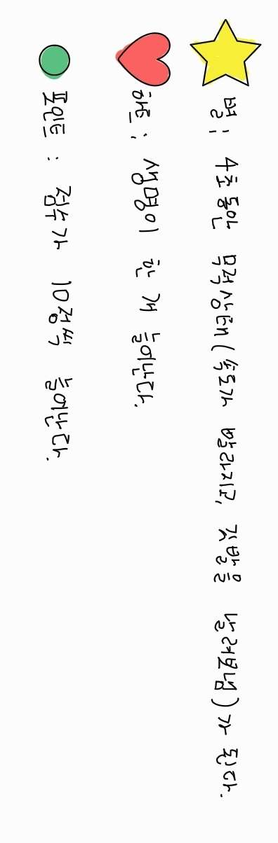 별 : 4초 동안 무적상태(속도가 빨라지고, 깃발을 날려보냄)가 된다.
하트 : 생명이 한 개 늘어난다.
포인트 : 점수가 10점씩 늘어난다.